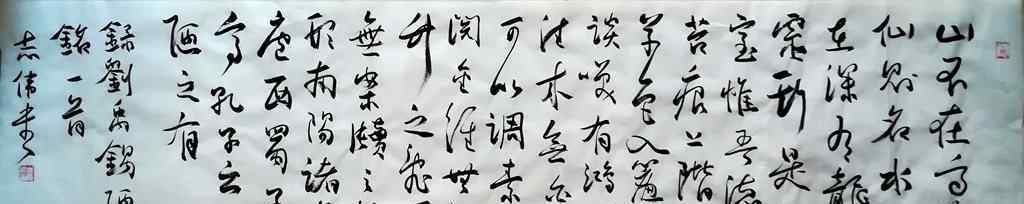 山不在高
仙则名水
在深有龍
靈斯是
室惟吾德
苔痕上階
草色入簾
談笑有鴻
往來無白
可以調素
閱金經無
竹之亂
無案牘之
形南陽諸
廬西蜀子
亭孔子云
陋之有
錄劉禹錫陋
銘一首
志偉書